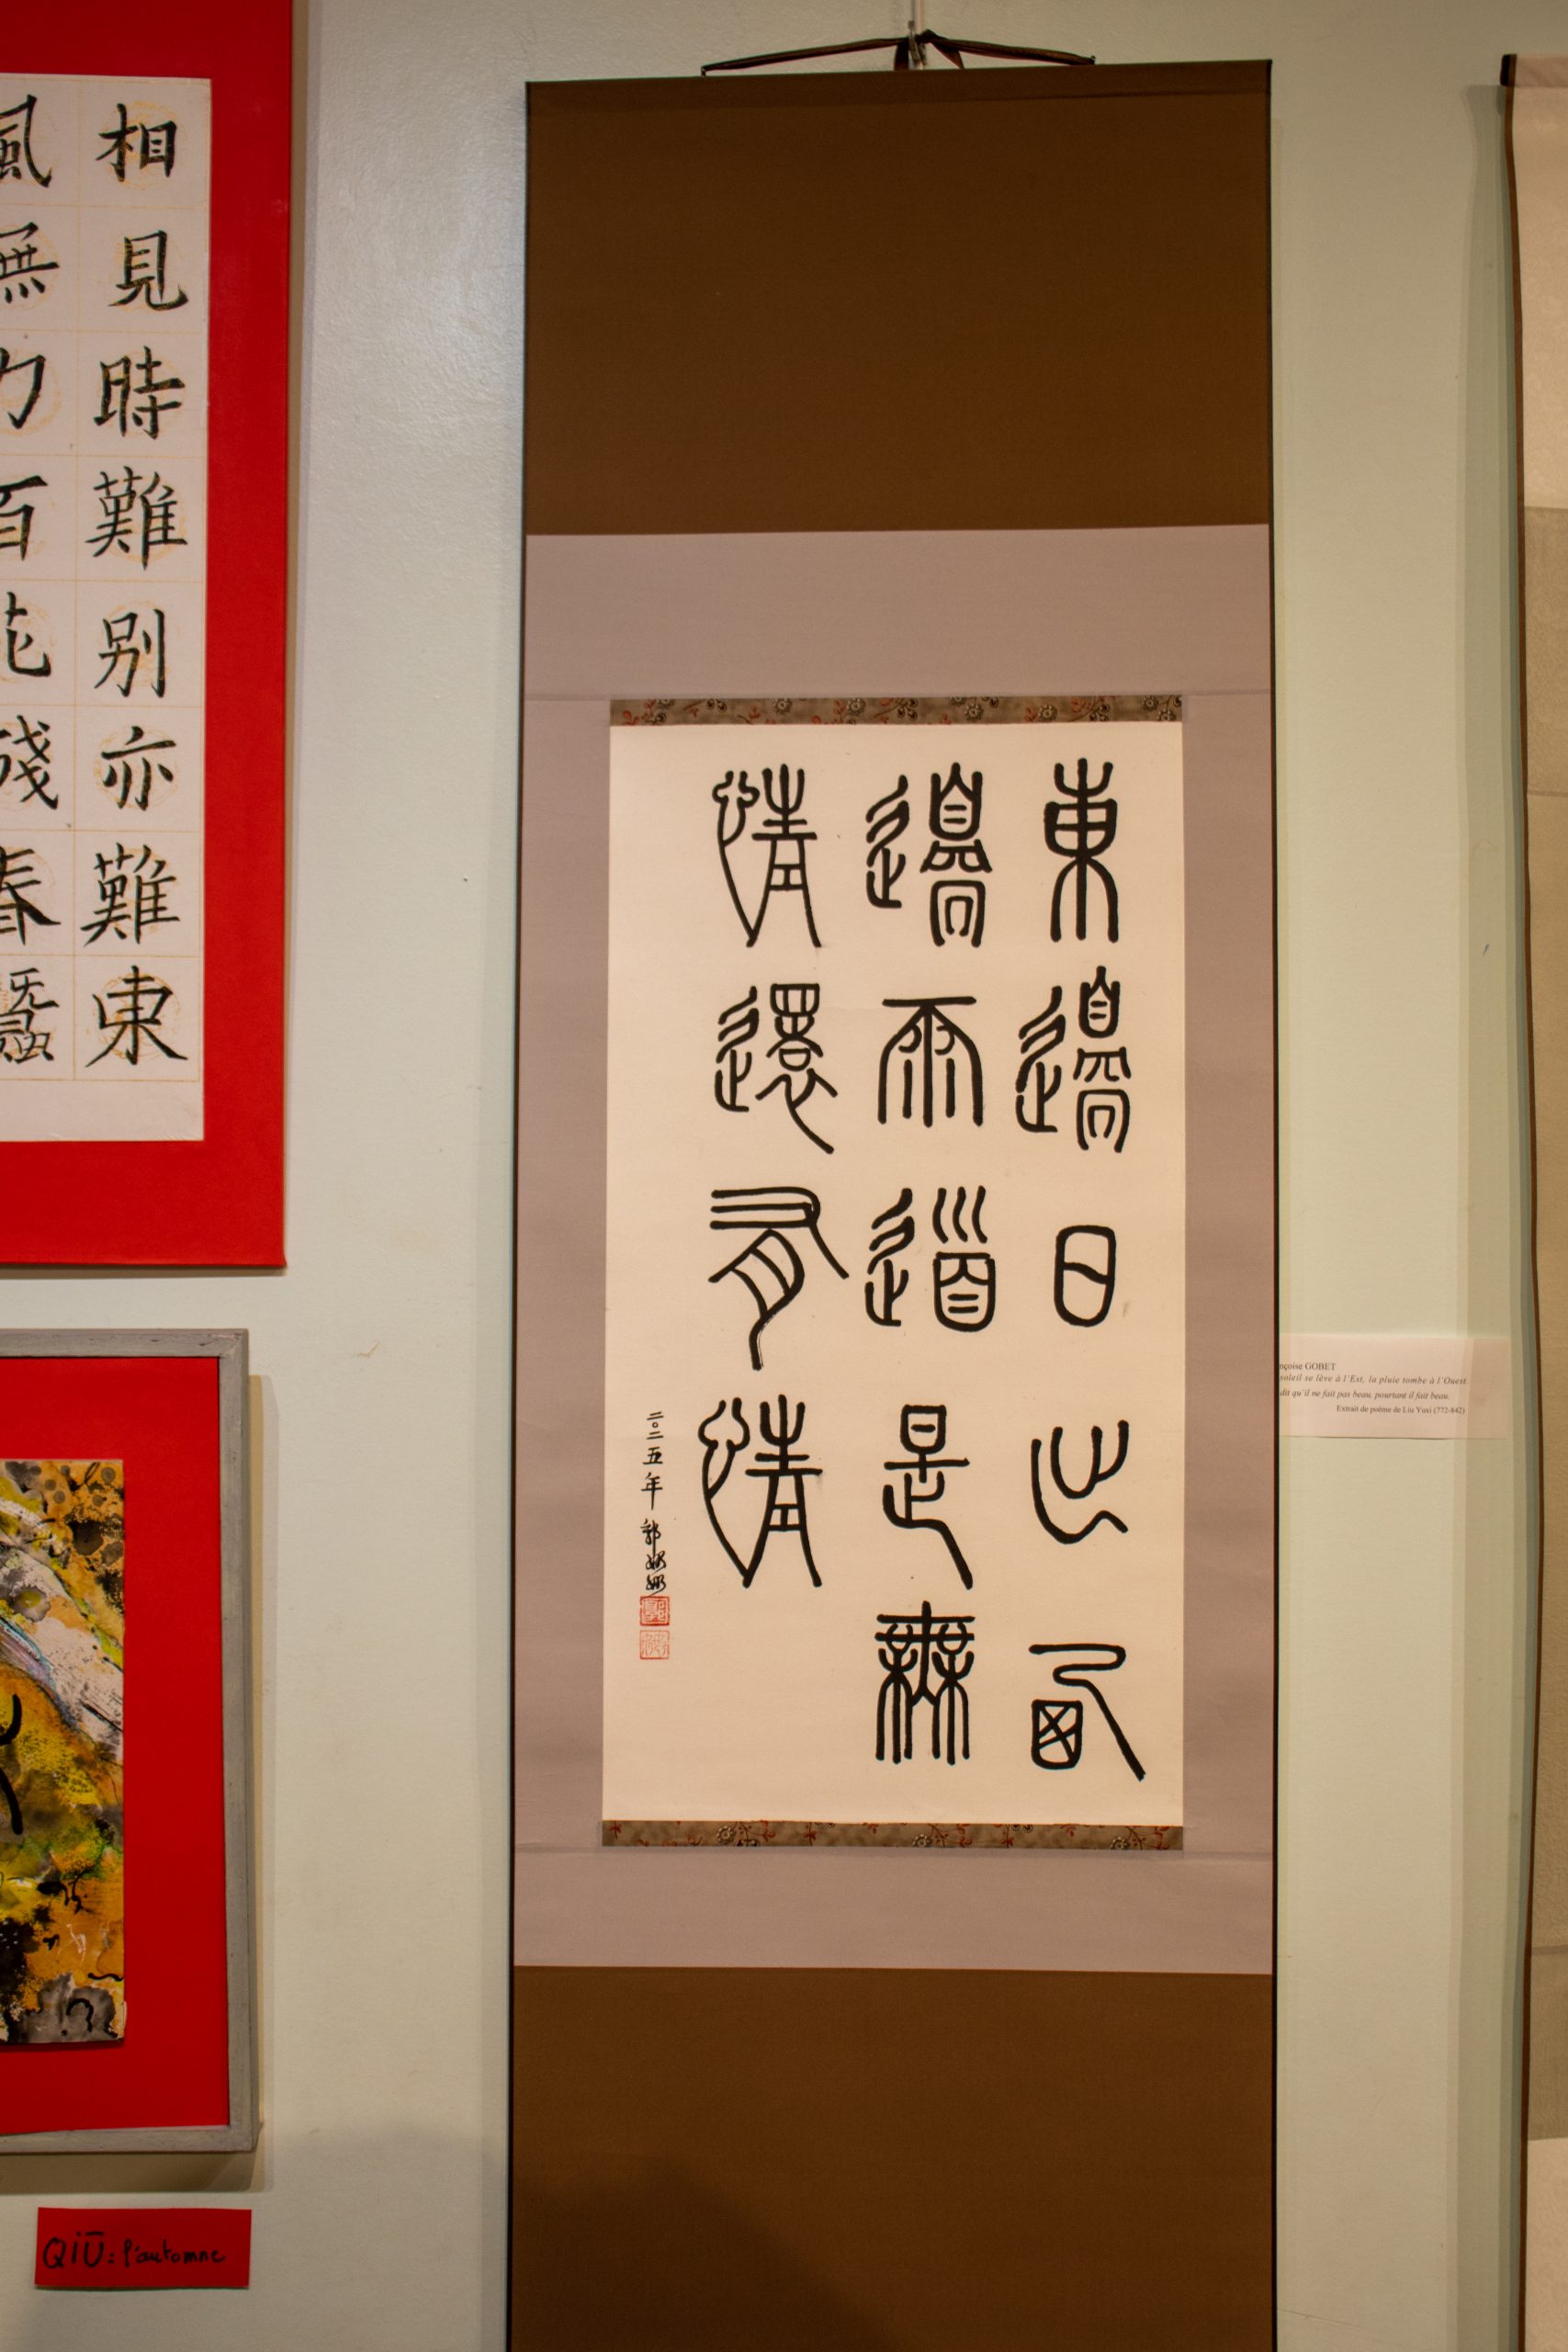 相見時難别亦難東
風無力百花殘春蠶
東邊日出西
邊雨道是無
情還有情
二〇二五年 郭
nçoise GOBET
soleil se lève à l'Est, la pluie tombe à l'Ouest
dit qu'il ne fait pas beau, pourtant il fait beau.
Extrait de poème de Liu Yuxi (772-842)
QIŪ: l'automne